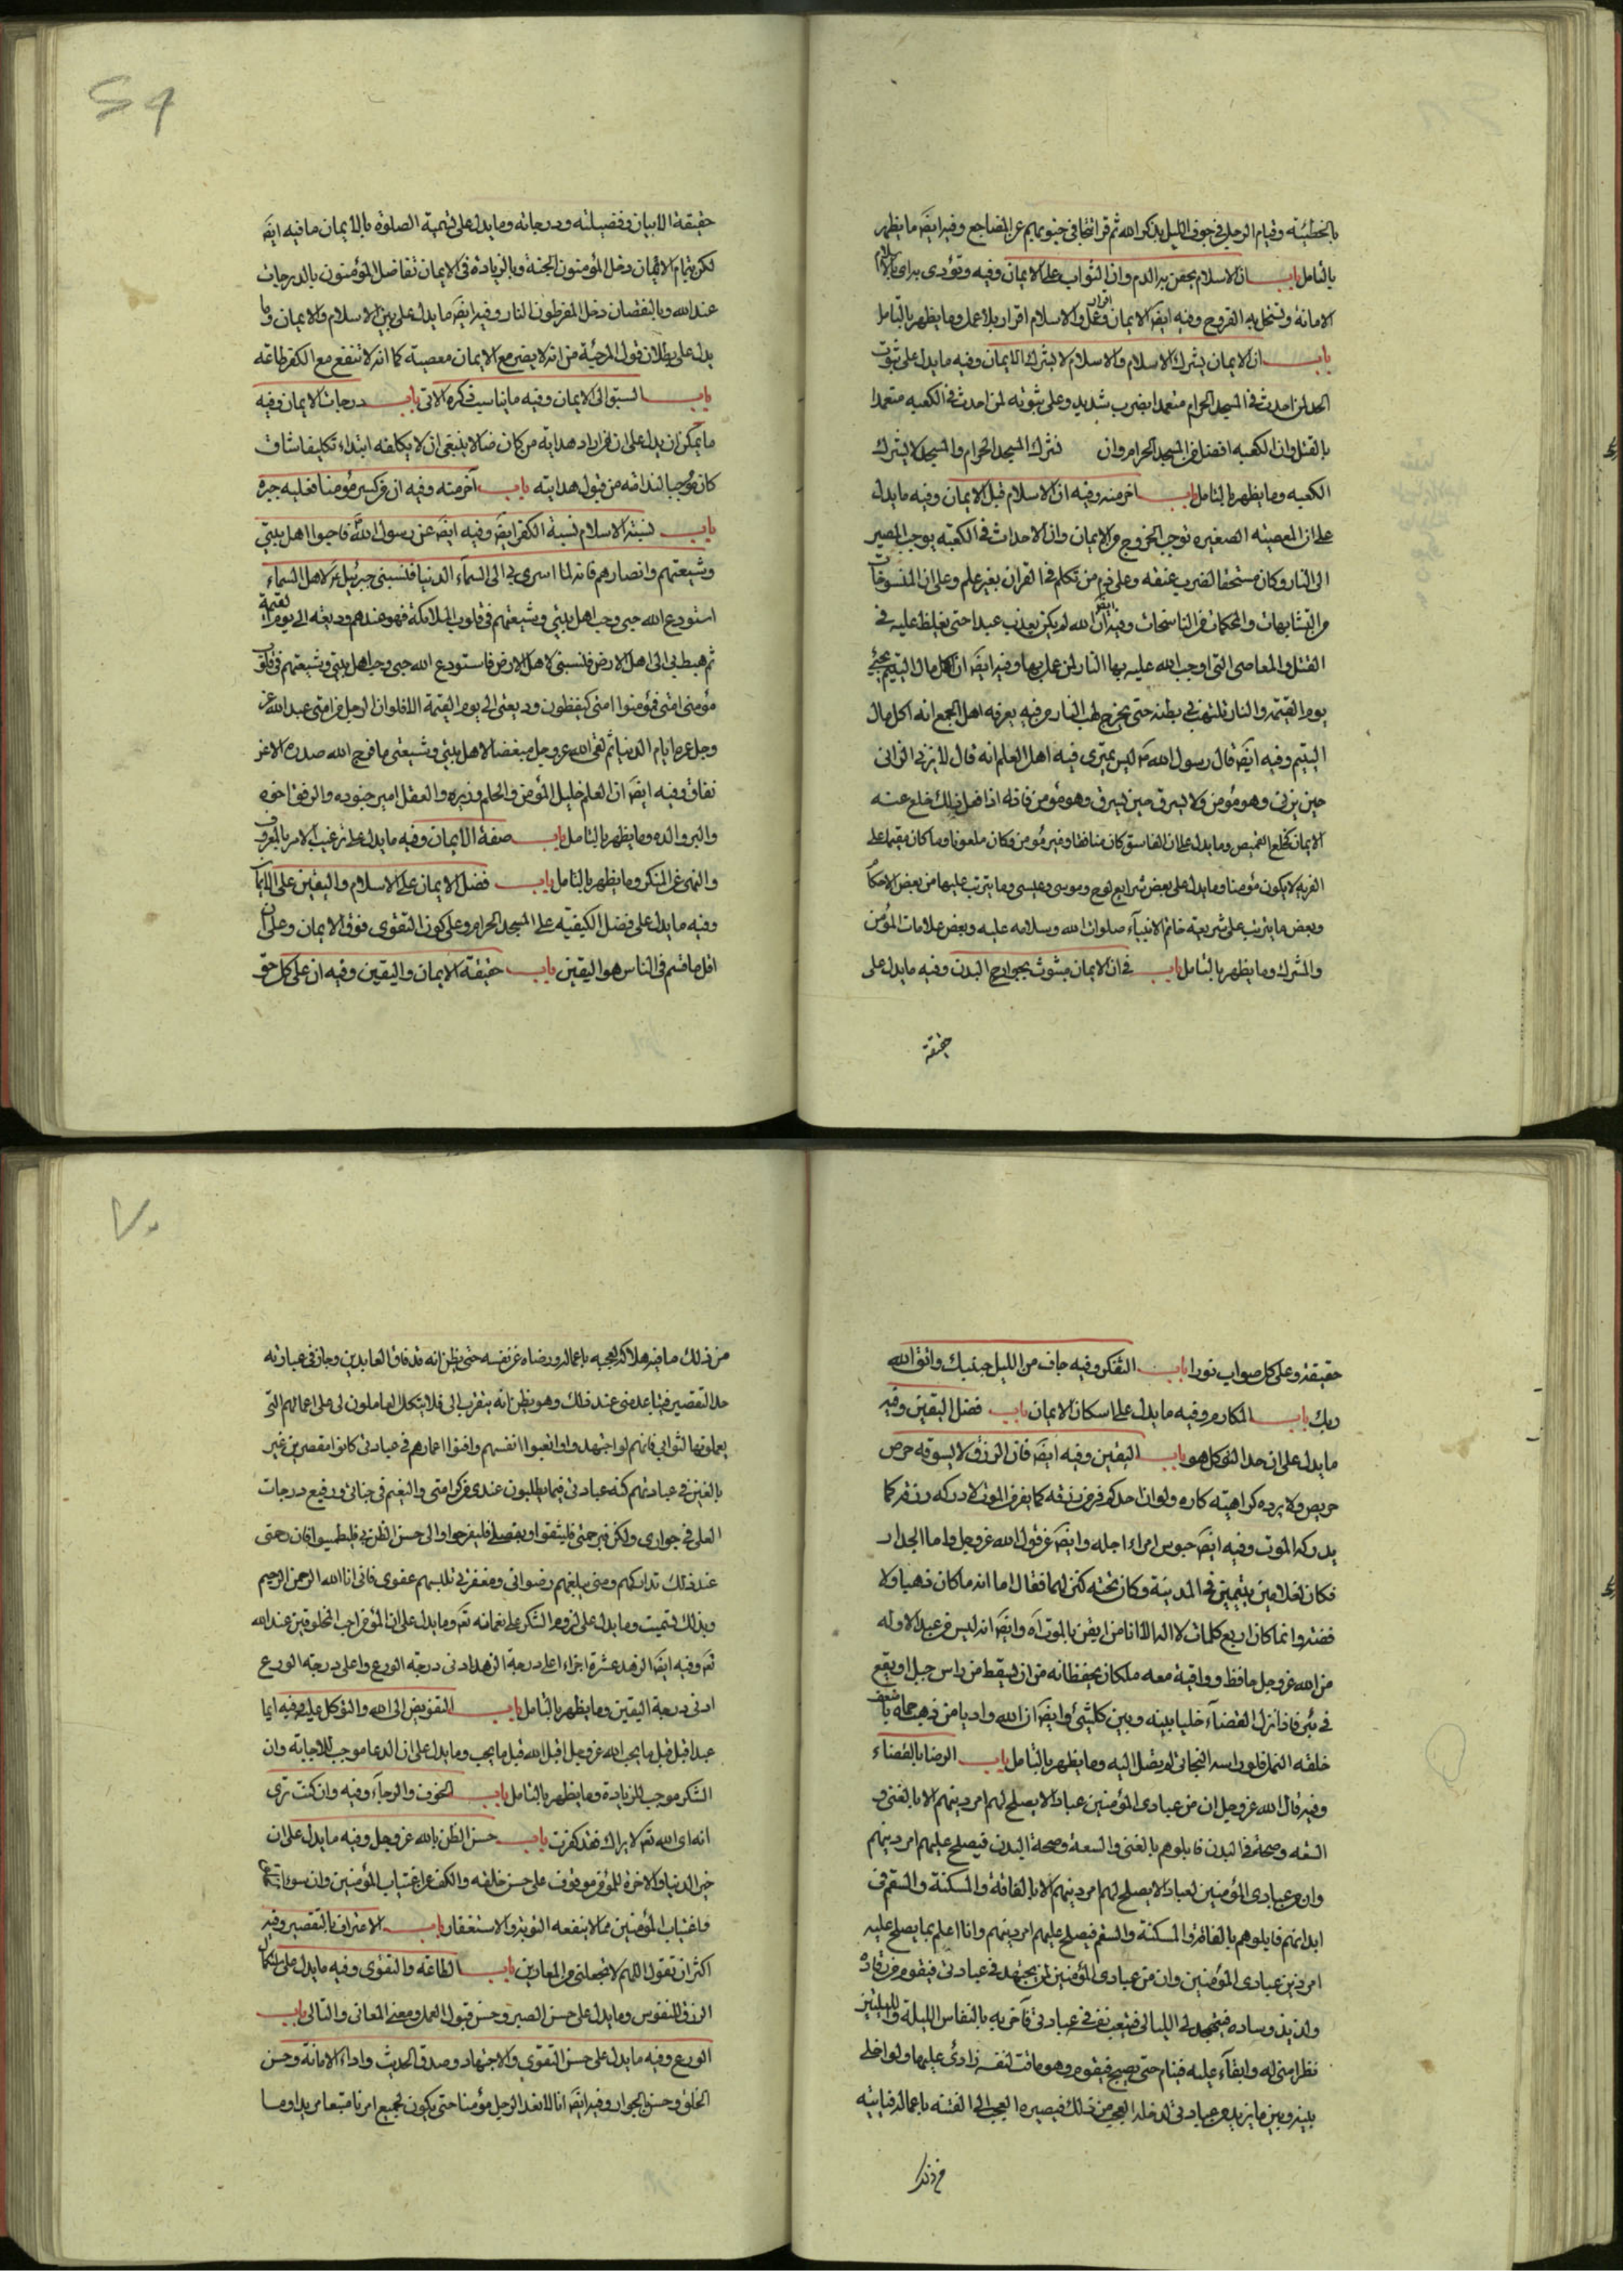 بالخطيئة وقيام الرجل في جوف الليل يذكر الله ثم قرأ تتجافى جنوبهم عن المضاجع وفيه ايضَ ما يظهر
بالتامل باب ان الاسلام يحقن به الدم وان الثواب على الايمان وفيه وتؤدى به
الامانة وتستحل به الفروج وفيه ايضَ الايمان اقرار وعمل والاسلام اقرار بلا عمل وما يظهر بالتامل
باب ان الايمان يشرك الاسلام والاسلام لا يشرك الايمان وفيه ما يدل على ثبوت
الحد لمن احدث في المسجد الحرام متعمدا بضرب شديد وعلى ثبوته لمن احدث في الكعبه متعمدا
بالقتل وان الكعبه افضل من المسجد الحرام وان تشرك المسجد الحرام والمسجد لا يشرك
الكعبه وما يظهر بالتامل باب اخر منه وفيه ان الاسلام قبل الايمان وفيه ما يدل
على ان المعصيته الصغيره توجب الخروج من الايمان وان الاحداث في الكعبه يوجب المصير
الى النار وكان مستحقا لضرب عنقه وعلى ذم من تكلم في القران بغير علم وعلى ان المنسوخات
من المتشابهات والمحكمات من الناسخات وفيه ايضَ ان الله لم يكن يعذب عبدا حتى يغلظ عليه في
القتل والمعاصى التى اوجب الله عليه بها النار لمن عمل بها وفيه ايضَ ان اكل مال اليتيم يجيئ
يوم القيمة والنار تلتهب في بطنه حتى يخرج لهب النار من فيه يعرفه اهل الجمع انه اكل مال
اليتيم وفيه ايضَ قال رسول الله ص ليس يمترى فيه اهل العلم انه قال لا يزنى الزانى
حين يزنى وهو مؤمن ولا يسرق حين يسرق وهو مؤمن فانه اذا فعل ذلك خلع عنه
الايمان كخلع القميص وما يدل على ان الفاسق كان منافقا وغير مؤمن وكان ملعونا وما كان مقيما على
الفريه لا يكون مؤمنا وما يدل على بعض شرايع نوح وموسى وعيسى وما يترتب عليها من بعض الاحكام
وبعض ما يترتب على شريعة خاتم الانبياء صلوات الله وسلامه عليه وبعض علامات المؤمن
والمشرك وما يظهر بالتامل باب في ان الايمان مبثوث بجوارح البدن وفيه ما يدل على
حقيقة
حقيقة الايمان وفضيلته ودرجاته وما يدل على تسمية الصلوة بالايمان ما فيه ايضَ
لكن بتمام الايمان دخل المؤمنون الجنة وبالزيادة في الايمان تفاضل المؤمنون بالدرجات
عند الله وبالنقصان دخل المفرطون النار وفيه ايضَ ما يدل على بين الاسلام والايمان وما
يدل على بطلان قول المرجئة من انه لا يضر مع الايمان معصية كما انه لا تنفع مع الكفر طاعة
باب السبق الى الايمان وفيه ما يناسب ذكره الاتى باب درجات الايمان وفيه
ما يمكن ان يدل على ان من اراد هداية من كان ضالا ينبغى ان لا يكلفه ابتداء تكليفا شاق
كان موجبا لندامه من قبول هدايته باب آخر منه وفيه ان من كسر مؤمنا فعليه جبره
باب نسبة الاسلام نسبة الكفر ايضَ وفيه ايضَ عن رسول الله فاحبوا اهل بيتى
وشيعتهم وانصارهم فانه لما اسرى بى الى السماء الدنيا فنسبنى جبرئيل ع لاهل السماء
استودع الله حبى وحب اهل بيتى وشيعتهم في قلوب الملائكة فهو عندهم وديعة الى يوم القيمة
ثم هبط بى الى اهل الارض فنسبنى لاهل الارض فاستودع الله حبى وحب اهل بيتى وشيعتهم في قلوب
مؤمنى امتى فمؤمنوا امتى يحفظون وديعتى الى يوم القيمة الا فلو ان الرجل من امتى عبد الله عز
وجل عمره ايام الدنيا ثم لقى الله عز وجل مبغضا لاهل بيتى وشيعتى ما فرج الله صدره الا عن
نفاق وفيه ايضَ ان العلم خليل المؤمن والحلم وزيره والعقل امير جنوده والرفق اخوه
والبر والده وما يظهر بالتامل باب صفة الايمان وفيه ما يدل على ترغيب الامر بالمعروف
والنهى عن المنكر وما يظهر بالتامل باب فضل الايمان على الاسلام واليقين على الايمان
وفيه ما يدل على فضل الكيفيه على المسجد الحرام وعلى كون التقوى فوق الايمان وعلى ان
اقل ما قسم في الناس هو اليقين باب حقيقة الايمان واليقين وفيه ان على كل حق
حقيقة وعلى كل صواب نورا باب التفكر وفيه جاف من الليل جنبك واتق الله
ربك باب المكارم وفيه ما يدل على اسكان الايمان باب فضل اليقين وفيه
ما يدل على ان حد التوكل هو باب اليقين وفيه ايضَ فان الرزق لا يسوقه حرص
حريص ولا يرده كراهيته كاره ولو ان احدكم فر من رزقه كما يفر من الموت لادركه رزقه كما
يدركه الموت وفيه ايضَ حبوس امراء اجله وايضَ عن قول الله عز وجل واما الجدار
فكان لغلامين يتيمين في المدينة وكان تحته كنز لهما فقال اما انه ما كان ذهبا ولا
فضة وانما كان اربع كلمات لا اله الا انا من ايقن بالموت آه وايضَ انه ليس من عبد الا وله
من الله عز وجل حافظ وواقية معه ملكان يحفظانه من ان يسقط من راس جبل او يقع
في بئر فاذا نزل القضآء خليا بينه وبين كلشئ وايضَ ان الله واديا من ذهب حماه باضعف
خلقه النمل فلو رامه النجاتى لم يصل اليه وما يظهر بالتامل باب الرضا بالقضاء
وفيه قال الله عز وجل ان من عبادى المؤمنين عبادا لا يصلح لهم امر دينهم الا بالغنى و
السعة وصحة في البدن فابلوهم بالغنى والسعة وصحة البدن فيصلح عليهم امر دينهم
وان من عبادى المؤمنين لعبادا لا يصلح لهم امر دينهم الا بالفاقة والمسكنة والسقم في
ابدانهم فابلوهم بالفاقة والمسكنة والسقم فيصلح عليهم امر دينهم وانا اعلم بما يصلح عليه
امر دين عبادى المؤمنين وان من عبادى المؤمنين لمن يجتهد في عبادتى فيقوم من رقاده
ولذيذ وساده فيتهجد لى الليالى فيتعب نفسه في عبادتى فآضربه بالنعاس الليلة والليلتين
نظرا منى له وابقآء عليه فينام حتى يصبح فيقوم وهو ماقت لنفسه زارئ عليها ولو اخلى
بينه وبين ما يريد من عبادتى لدخله العجب من ذلك فيصيره العجب الى الفتنة باعماله فياتيه
من ذلك
من ذلك ما فيه هلاكه لعجبه باعماله ورضاه عن نفسه حتى يظن انه قد فاق العابدين وجاز في عبادته
حد التقصير فيتباعد منى عند ذلك وهو يظن انه يتقرب الى فلا يتكل العاملون لى على اعمالهم التى
يعملونها لثوابى فانهم لو اجتهدوا واتعبوا انفسهم وافنوا اعمارهم في عبادتى كانوا مقصرين غير
بالغين في عبادتهم كنه عبادتى فيما يطلبون عندى من كرامتى والنعيم في جناتى ورفيع درجات
العلى في جوارى ولكن فبرحمتى فليثقوا وبفضلى فليفرحوا والى حسن الظن بى فليطمئنوا فان رحمتى
عند ذلك تداركهم ومنى يبلغهم رضوانى ومغفرتى تلبسهم عفوى فانى انا الله الرحمن الرحيم
وبذلك تسميت وما يدل على لزوم الشكر على نعمائه تعَ وما يدل على ان المؤمن احب المخلوقين عند الله
تعَ وفيه ايضَ الزهد عشرة اجزاء اعلى درجة الزهد ادنى درجة الورع واعلى درجة الورع
ادنى درجة اليقين وما يظهر بالتامل باب التفويض الى الله والتوكل عليه وفيه ايما
عبد اقبل قبل ما يحب الله عز وجل اقبل الله قبل ما يحب وما يدل على ان الدعا موجب للاجابة وان
الشكر موجب للزيادة وما يظهر بالتامل باب الخوف والرجآء وفيه وان كنت ترى
انه اى الله تعَ لا يراك فقد كفرت باب حسن الظن بالله عز وجل وفيه ما يدل على ان
خير الدنيا والاخرة للمؤمن موقوف على حسن خلقه والكف عن اغتياب المؤمنين وان سوء
واغتياب المؤمنين مما لا ينفعه التوبة والاستغفار باب الاعتراف بالتقصير وفيه
اكثر ان تقول اللهم لا تجعلنى من المعارين باب الطاعة والتقوى وفيه ما يدل على
الرزق للنفوس وما يدل على حسن الصبر وحسن قبول العمل ومعنى الغالى والتالى باب
الورع وفيه ما يدل على حسن التقوى والاجتهاد وصدق الحديث واداء الامانة وحسن
الخلق وحسن الجوار وفيه ايضَ انا لا نعد الرجل مؤمنا حتى يكون لجميع امرنا متبعا مريدا وما